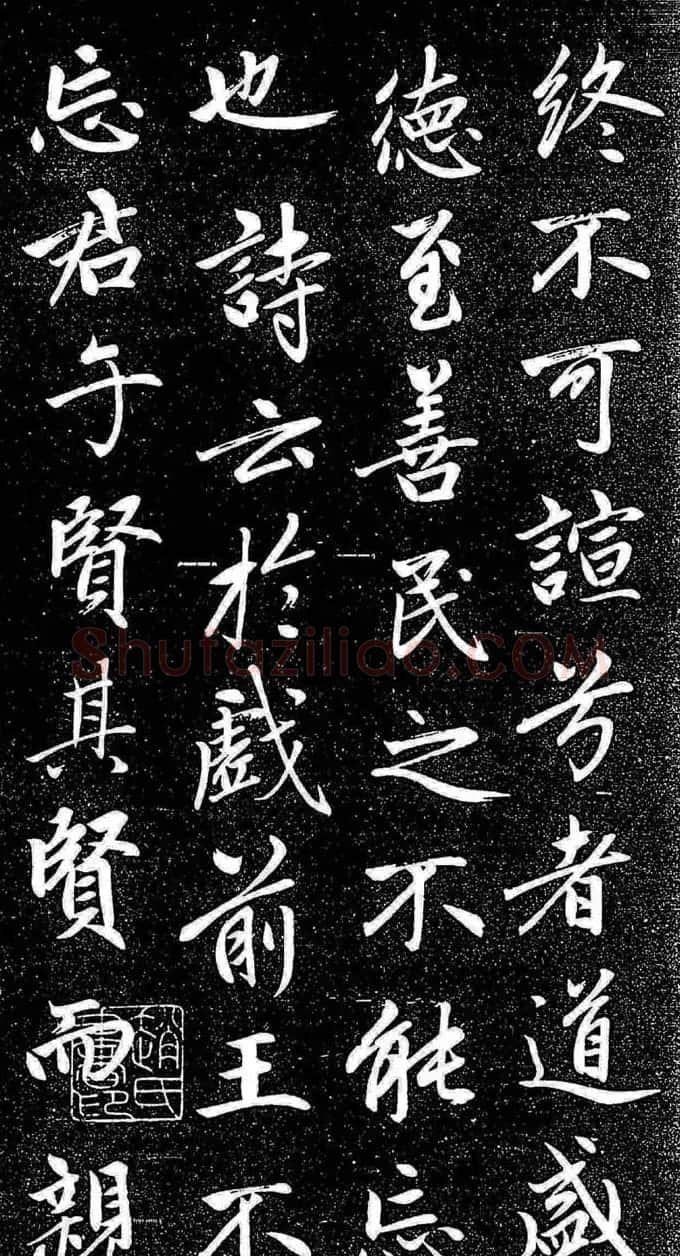 終不可諠兮者道盛
德至善民之不能忘
也詩云於戲前王不
忘君子賢其賢而親
Shufaziliao.COM